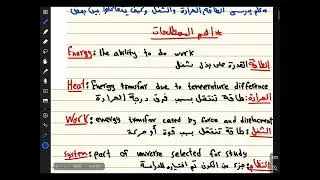 علم يدرس الطاقة الحرارة والشغل وكيف
* اهم المصطلحات
Energy: the ability to do work
الطاقة: القدرة على بذل شغل
Heat: Energy transfer due to temereture difference
الحرارة: طاقة تنتقل بسبب فرق درجة الحرارة
Work: enenrgy transfer cated by force and displacment
الشغل: طاقة تنتقل بسبب قوة أو حركة
system: part of universe selected for study
النظام: جزء من الكون تم اختياره للدراسة